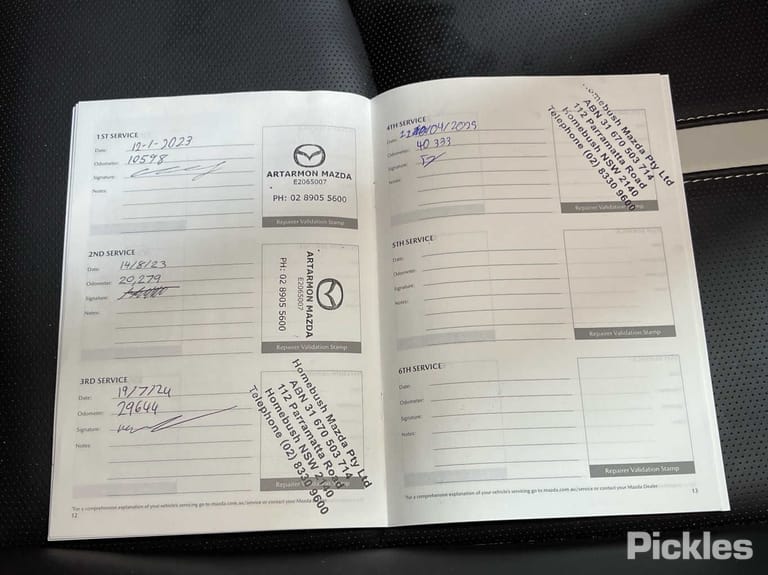 1ST SERVICE
Date: 12-1-2023
Odometer: 10598
Signature:
Notes:
ARTARMON MAZDA
E2065007
PH: 02 8905 5600
Repairer Validation Stamp
2ND SERVICE
Date: 14/8/23
Odometer: 20,279
Signature:
Notes:
ARTARMON MAZDA
E2065007
PH: 02 8905 5600
Repairer Validation Stamp
3RD SERVICE
Date: 19/7/24
Odometer: 29644
Signature:
Notes:
Homebush Mazda Pty Ltd
ABN 31 670 503 714
112 Parramatta Road
Homebush NSW 2140
Telephone (02) 8330 9600
Repairer Validation Stamp
*For a comprehensive explanation of your vehicle's servicing go to mazda.com.au/service or contact your Mazda
12
4TH SERVICE
Date: /04/2025
Odometer: 40 333
Signature:
Notes:
Homebush Mazda Pty Ltd
ABN 31 670 503 714
112 Parramatta Road
Homebush NSW 2140
Telephone (02) 8330 9600
Repairer Validation Stamp
5TH SERVICE
Date:
Odometer:
Signature:
Notes:
Repairer Validation Stamp
6TH SERVICE
Date:
Odometer:
Signature:
Notes:
Repairer Validation Stamp
*For a comprehensive explanation of your vehicle's servicing go to mazda.com.au/service or contact your Mazda Dealer.
13
Pickles